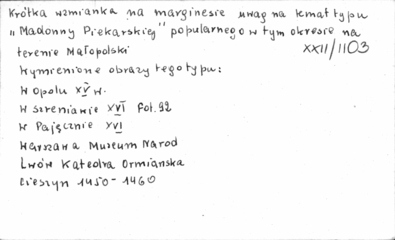 Krótka wzmianka na marginesie uwag na temat typu
"Madonny Piekarskiej" popularnego w tym okresie na
terenie Małopolski
XXII/1103
Wymienione obrazy tego typu:
W Opolu XV w.
W Szreniawie XVI fot. 92
W Pajęcznie XVI
Warszawa Museum Narod
Lwów Katedra Ormianska
Cieszyn 1450-1460